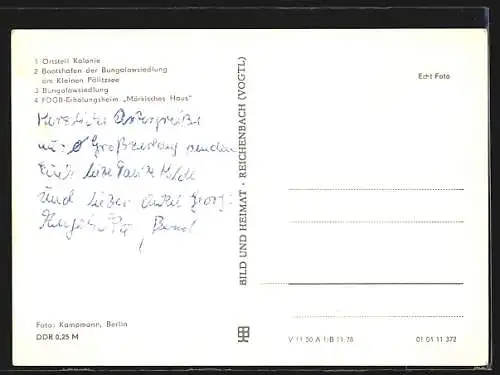 1 Ortsteil Kolonie
2 Bootshafen der Bungalowsiedlung
am Kleinen Pälitzsee
3 Bungalowsiedlung
4 FDGB-Erholungsheim „Märkisches Haus"
Herzliche Ostergrüße
aus Großzerlang senden
Euch liebe Tante Hilde
und lieber Onkel Georg
Bernd
Foto: Kampmann, Berlin
DDR 0,25 M
BILD UND HEIMAT · REICHENBACH (VOGTL)
Echt Foto
V 11 50 A 1/B 11/78
01 01 11 372